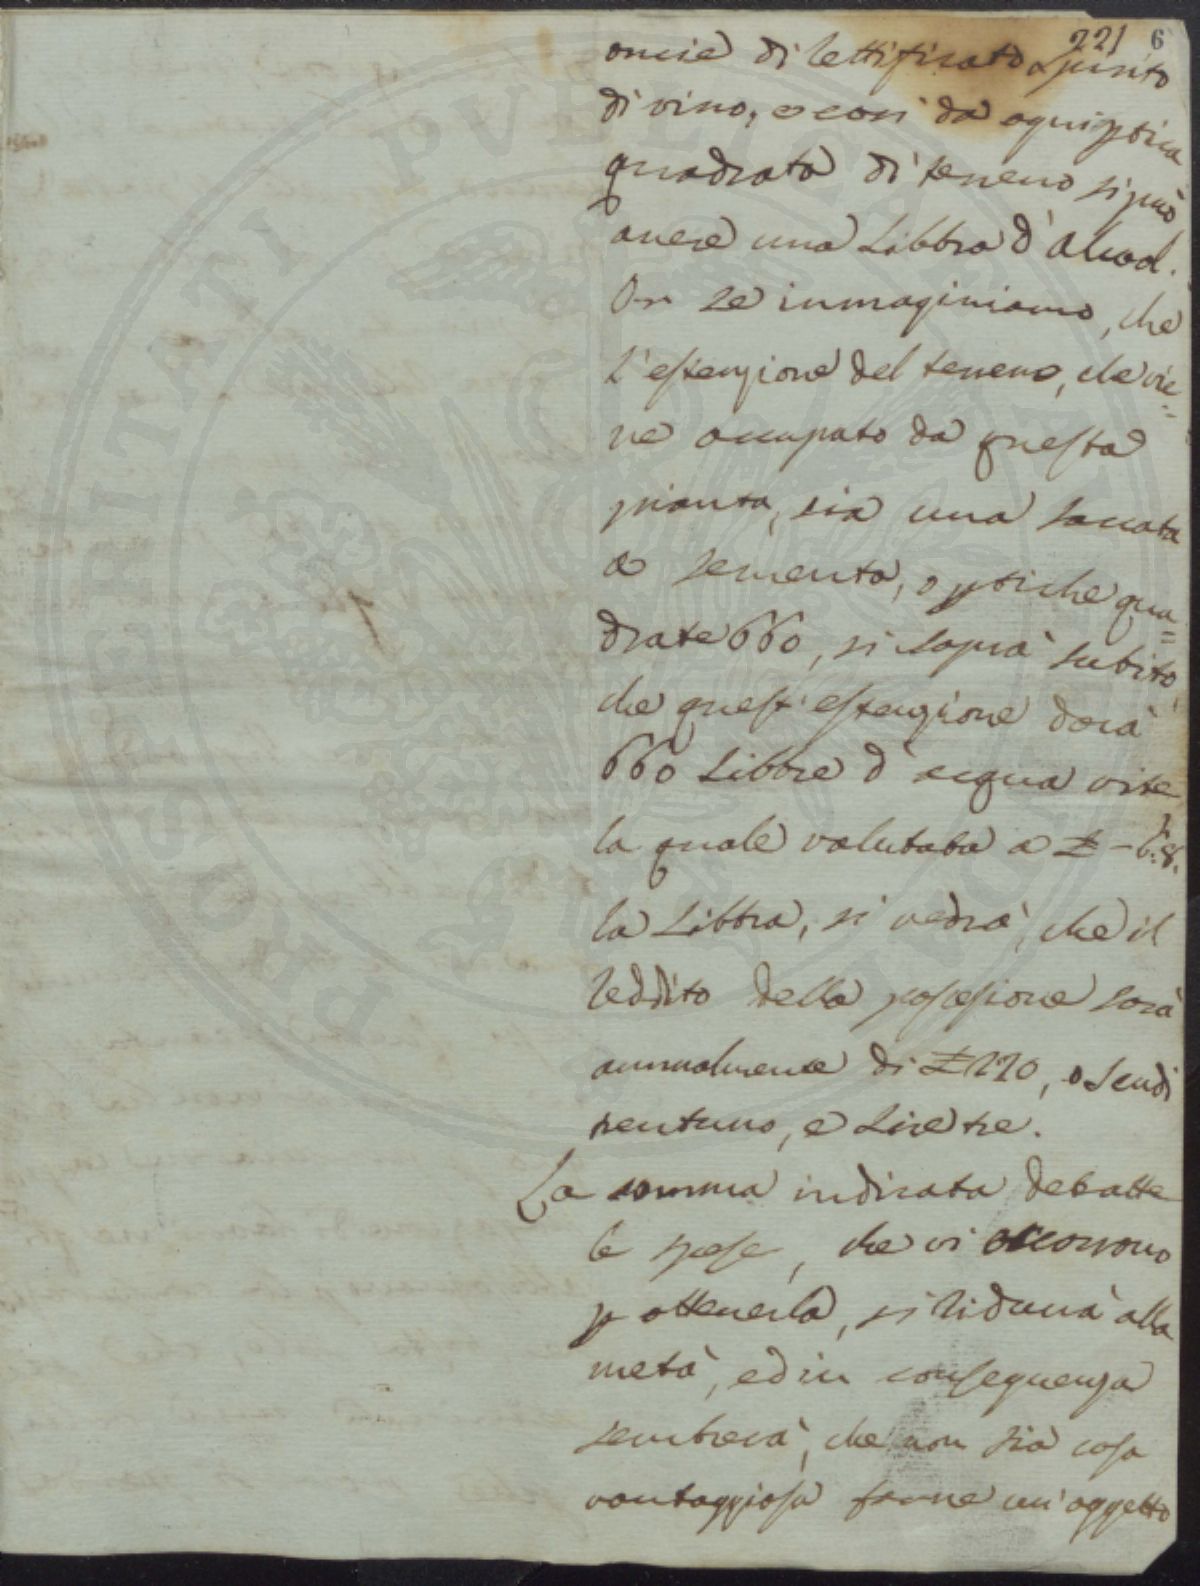 221 6
oncie di lettificato Spirito
di vino, e così da ogni ptica
quadrata di terreno si può
avere una Libbra d'Alcool.
Or se immaginiamo, che
l'estenzione del terreno, che vie=
ne occupato da questa
pianta, sia una saccata
a sementa, o ptiche qua=
drate 660, si saprà subito
che quest'estenzione darà
660 Libbre d'acqua vite
la quale valutata a £ - 6.8.
la Libbra, si vedrà, che il
reddito della possesione sarà
annualmente di £ 220, o Scudi
trentuno, e Lire tre.
La somma indicata debatte
le spese, che vi occorrono
p ottenerla, si ridurrà alla
metà, ed in conseguenza
sembrerà, che non sia cosa
vantaggiosa farne un'oggetto
PROSPERITATI PVBLICAE